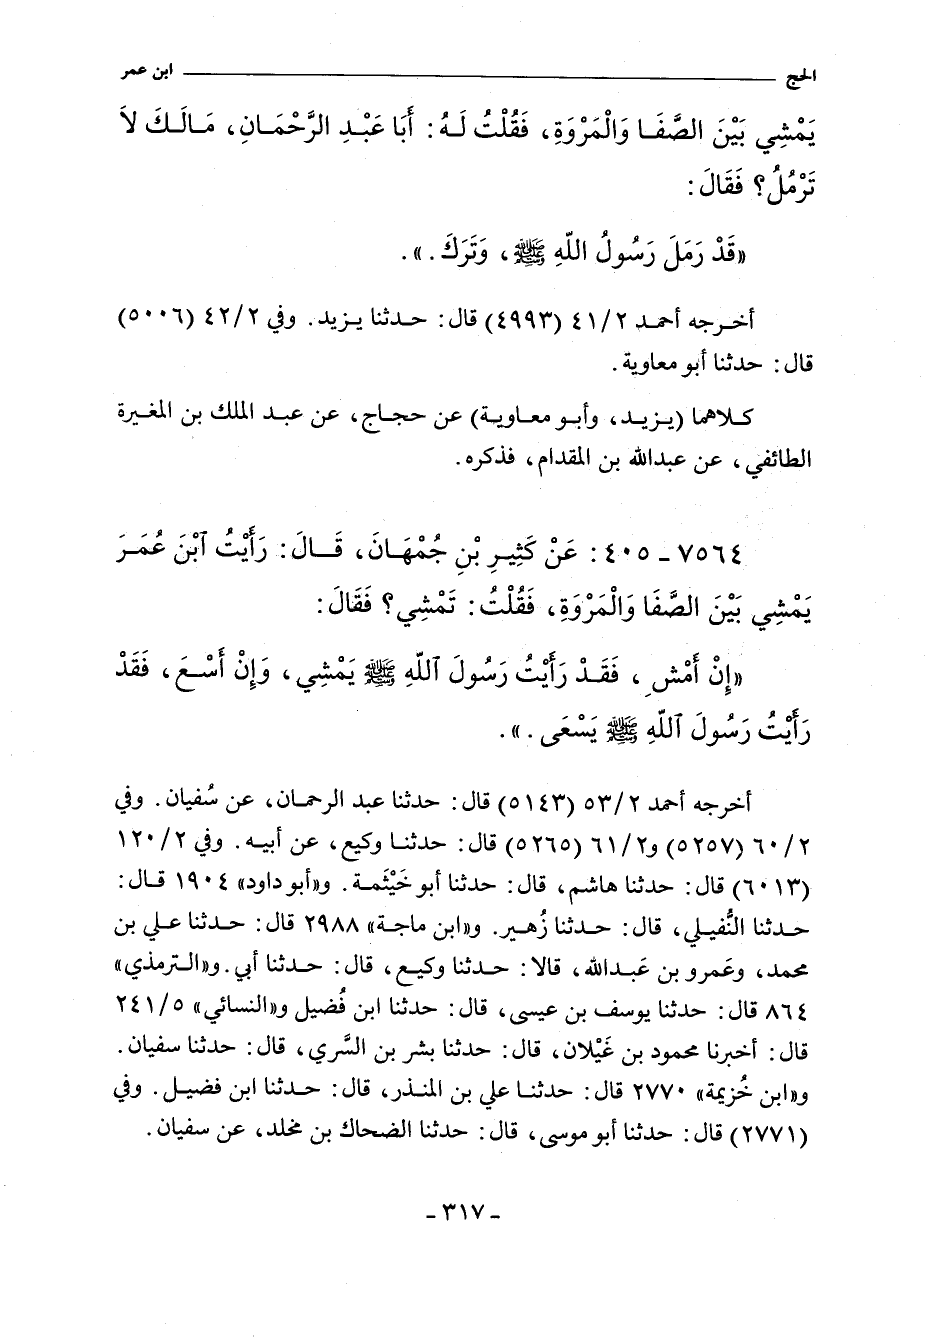 الحج ــــــــــ ابن عمر
يَمْشِي بَيْنَ الصَّفَا وَالْمَرْوَةِ، فَقُلْتُ لَهُ: أَبَا عَبْدِ الرَّحْمَانِ، مَالَكَ لاَ
تَرْمُلُ؟ فَقَالَ:
«قَدْ رَمَلَ رَسُولُ اللّهِ ﷺ، وَتَرَكَ.».
أخرجه أحمد ٤١/٢ (٤٩٩٣) قال: حدثنا يزيد. وفي ٤٢/٢ (٥٠٠٦)
قال: حدثنا أبو معاوية.
كلاهما (يزيد، وأبو معاوية) عن حجاج، عن عبد الملك بن المغيرة
الطائفي، عن عبدالله بن المقدام، فذكره.
٧٥٦٤ - ٤٠٥: عَنْ كَثِيرِ بْنِ جُمْهَانَ، قَالَ: رَأَيْتُ ٱبْنَ عُمَرَ
يَمْشِي بَيْنَ الصَّفَا وَالْمَرْوَةِ، فَقُلْتُ: تَمْشِي؟ فَقَالَ:
«إِنْ أَمْشِ، فَقَدْ رَأَيْتُ رَسُولَ ٱللّهِ ﷺ يَمْشِي، وَإِنْ أَسْعَ، فَقَدْ
رَأَيْتُ رَسُولَ ٱللّهِ ﷺ يَسْعَى.».
أخرجه أحمد ٥٣/٢ (٥١٤٣) قال: حدثنا عبد الرحمان، عن سُفيان. وفي
٦٠/٢ (٥٢٥٧) و٦١/٢ (٥٢٦٥) قال: حدثنا وكيع، عن أبيه. وفي ١٢٠/٢
(٦٠١٣) قال: حدثنا هاشم، قال: حدثنا أبو خَيْثَمة. و«أبو داود» ١٩٠٤ قال:
حدثنا النُّفيلي، قال: حدثنا زُهير. و«ابن ماجة» ٢٩٨٨ قال: حدثنا علي بن
محمد، وعَمرو بن عَبدالله، قالا: حدثنا وكيع، قال: حدثنا أبي. و«الترمذي»
٨٦٤ قال: حدثنا يوسف بن عيسى، قال: حدثنا ابن فُضيل و«النسائي» ٢٤١/٥
قال: أخبرنا محمود بن غَيْلان، قال: حدثنا بشر بن السَّري، قال: حدثنا سفيان.
و«ابن خُزيمة» ٢٧٧٠ قال: حدثنا علي بن المنذر، قال: حدثنا ابن فضيل. وفي
(٢٧٧١) قال: حدثنا أبو موسى، قال: حدثنا الضحاك بن مخلد، عن سفيان.
- ٣١٧ -